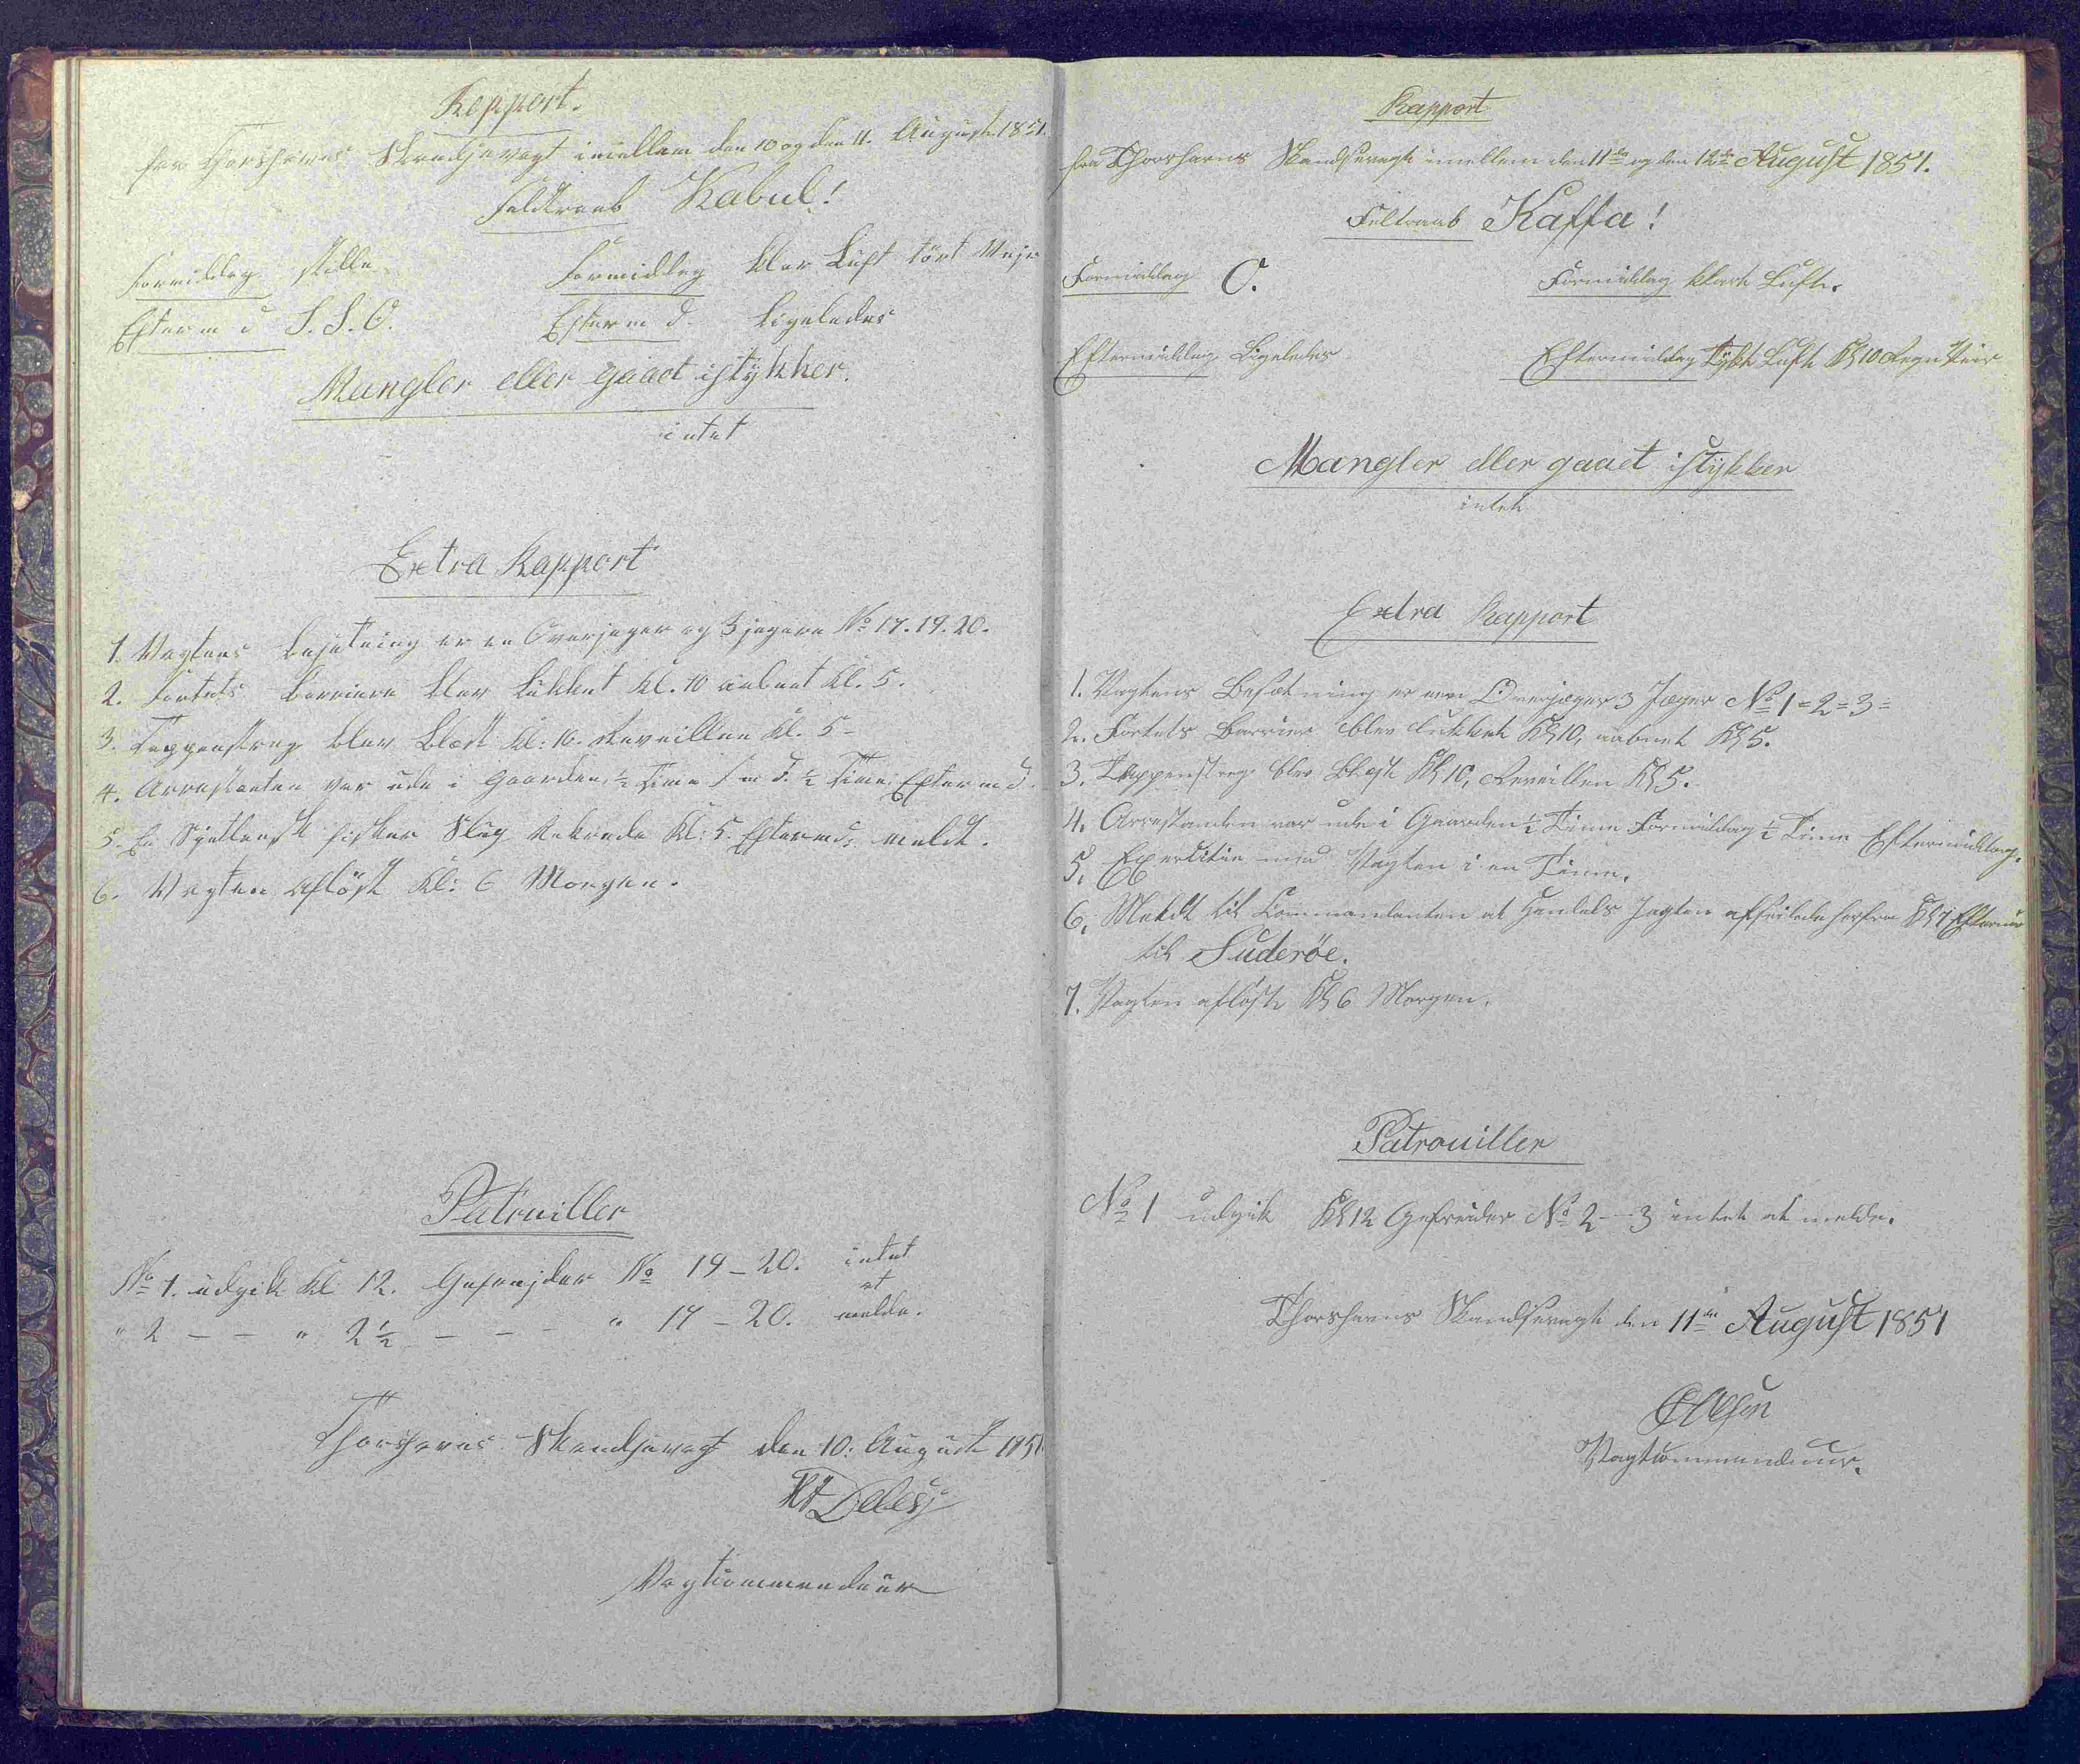 Rapport.
fra Thorshavns Skandsevagt imellem den 10 og den 11. August 1851.
Feldtraab Kabul!
Formiddag stille Formiddag klar Luft tört Vejr
Efterm d S. S. O. Efterm d. Ligeledes
Mangler eller gaaet istykker.
intet
Extra Rapport
1. Vagtens besetning er en Overjæger og 3 jægere No 17. 19. 20.
2. Fortets barriere blev Lukket Kl. 10 aabnet Kl. 5.
3. Tappenstreg blev blæst Kl: 10. Reveillen Kl. 5-
4. Arrestanten var ude i Gaarden ½ Time F m d. ½ Time Efter m d.
5. En Sjetlensk fisker Slup Ankrede Kl: 5. Efterm d. meldt.
6. Vagten aflöst Kl: 6 Morgen.
Patruiller
No 1. udgik Kl 12. Gefrejder No 19 - 20. intet
at
" 2 - - " 2½ - - - " 17 - 20. melde.
Thorshavns Skandsevagt den 10. August 1851
Vagtcommendeur
Rapport
fra Thorshavns Skandsevagt imellem den 11te og den 12te August 1851.
Feltraab Kaffa!
Formiddag O. Formiddag klart Luft.
Eftermiddag Ligeledes Eftermiddag Tykt Luft Kl 10 Regn Veir
Mangler eller gaaet istykker
intet
Extra Rapport
1. Vagtens Besætning er een Overjæger 3 Jæger No 1 = 2 = 3 =
2. Fortets Barrier blev lukket Kl 10, aabnet Kl 5.
3. Tappenstreg blev Blæst Kl 10, Reveillen Kl 5.
4. Arrestanden var ude i Gaarden ½ Time Formiddag ½ Time Eftermiddag.
5. Exersitie med Vagten i en Time.
6. Meldt til Commandanten at Handels Jagten afseilede herfra Kl 7 Efterm
til Suderöe.
7. Vagten aflöste Kl 6 Morgen.
Patrouiller
No 1 udgik Kl 12 Gefreider No 2 - 3 intet at melde.
Thorshavns Skandsevagt den 11te August 1851
Vagtcommendeur.